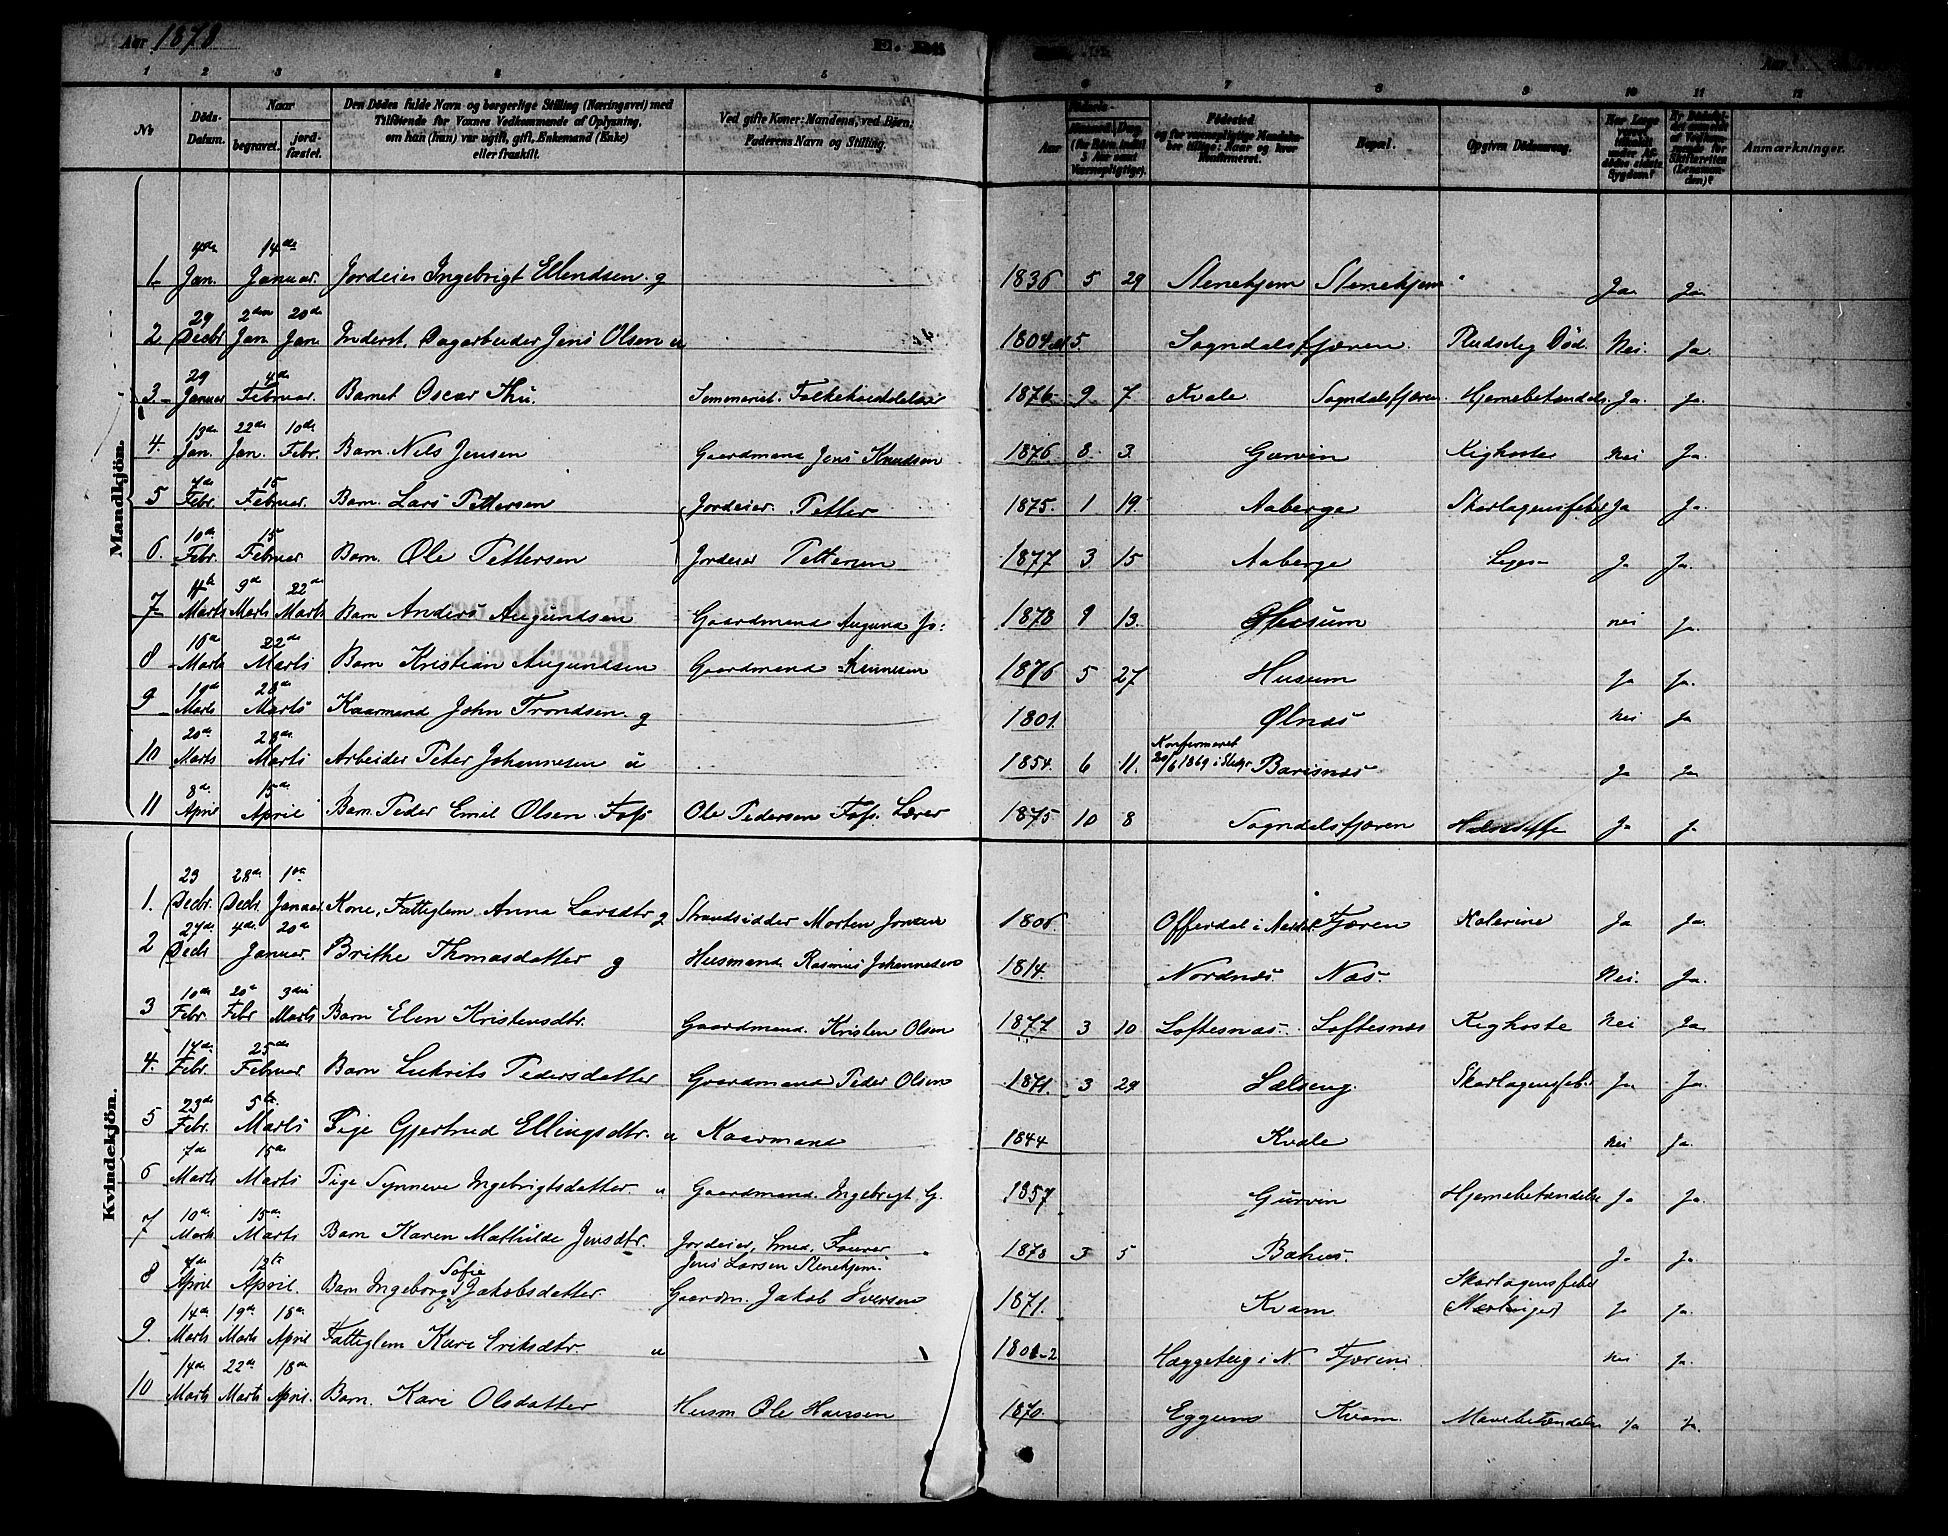 Aar 1878
E. Dö
Aar
1 2 3 4 5 6 7 8 9 10 11 12
No Döds-Datum. Naar begravet. jord-fæstet. Den Dödes fulde Navn og borgerlige Stilling (Næringsvei) med Tilföiende for Voxnes Vedkommende af Oplysning, om han (hun) var ugift, gift, Enkemand (Enke) eller fraskilt. Ved gifte Koner: Mandens, ved Börn: Faderens Navn og Stilling. Aar Maaned. Dag. (for Börn indtil 3 Aar samt Værnepligtige). Födested og for værnepligtige Mandskaber tillige: Naar og hvor Konfirmeret. Bopæl. Opgiven Dödsaarsag. Anmærkninger.
Mandkjön.
1 4de Jan. 14de Januar. Jordeier Ingebrigt Ellendsen g 1836 5 29 Stenehjem Stenehjem Ja Ja
2 29 Decbr 2den Jan 20de Jan Inderst, Dagarbeider Jens Olsen u 1804 5. Sogndalsfjæren. Pludselig Död. Nei. Ja
3 29 Januar 4de Februar. Barnet Oscar Thu. Seminarist. 1876 9 7 Kvale. Sogndalsfjæren. Hjernebetændelse Ja. Ja.
4. 13de Jan. 22de Jan. 10de Febr. Barn Nils Jensen Gaardmand Jens Knudsen 1876 8. 3. Gurvin Kighoste Nei Ja.
5 7de Febr. 15 Februar. Barn. Lars Pettersen Jordeier Petter 1875. 1 19. Aaberge Skarlagensfeber Ja Ja.
6. 10de Febr. 15 Februar Barn. Ole Pettersen Jordeier Pettersen 1877 3 15 Aaberge Ligesaa Ja Ja.
7 4de Marts 9de Marts 22de Marts Barn Anders Augundsen Gaardmand Augund Jo: 1878 9 13. Husum nei Ja.
8 16de Marts 22de Marts Barn Kristian Augundsen Gaardmand 1876 5 27 Husum Ja Ja.
9 19de Marts 28de Marts Kaarmand John Trondsen. g 1801. Ølnæs Nei Ja
10 20de Marts 28de Marts Arbeider Peter Johannesen u 1854. 6 11. Konfirmeret 20/6 1869 i Stedje Barsnæs Ja Ja
11 8de April 15de April Barn Peder Emil Olsen Foss Ole Pedersen Foss. Lærer 1875 10 8 Sogndalsfjæren Ja Ja
Kvindekjön.
1. 23 Decbr. 28de Decbr. 1ste Januar Kone, Fattiglem Anna Larsdtr g Strandsidder Morten Jonsen 1806 Offerdal i Aardal Fjæren Kolerine Ja Ja
2 27de Decbr 4de 20de Januar Brithe Thomasdatter g Husmand Rasmus Johannesen 1814. Nordnæs. Næs. Nei. Ja.
3 10de Febr. 20de Febr 3die Marts Barn Elen Kristensdtr. Gaardmand. Kristen Olsen 1877 3 10 Loftesnæs. Loftesnæs Kighoste Nei Ja
4. 14de Febr. 25de Februar Barn Lukrits Pedersdatter Gaardmand Peder Olsen 1871. 3 29 Sælseng. Skarlagensfeb. Ja Ja.
5 23de Febr. 5te Marts Pige Gjertrud Ellingsdtr. u Kaarmand 1844 Kvale nei Ja.
6 7de Marts 15de Marts Pige Synneve Ingebrigtsdatter. u Gaardmand. Ingebrigt G. 1857 Gurvin Hjernebetændelse Ja Ja.
7 10de Marts 15de Marts Barn Karen Mathilde Jensdtr. Jordeier, Smed, Jens Larsen Stenehjem. 1878 3 5 Bahus. Ja Ja.
8 4de April 12te April. Barn Ingeborg Sofie Jakobsdatter Gaardm. Jakob Iversen 1871. Kvam Skarlagensfeber Ja Ja.
9. 14de Marts 19de Marts 18de April Fattiglem Kari Eriksdtr. u 1801-2 Hæggeteig i N. Fjæren. nei Ja.
10 14de Marts 22de Marts 18de April. Barn. Kari Olsdatter Husm Ole Hanssen 1870. Eggum Kvam. Mavebetændelse Ja Ja.